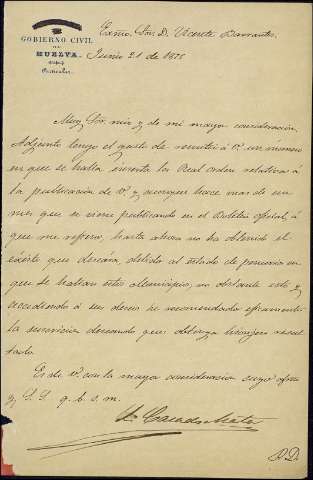 GOBIERNO CIVIL
DE
HUELVA.
Particular.
Exmo. Sor. D. Vicente Barrantes
Junio 21 de 1875
Muy Sor. mio y de mi mayor consideración.
Adjunto tengo el gusto de remitir á V. un numero
en que se halla inserta la Real Orden relativa á
la publicacion de V. y aunque hace mas de un
mes que se viene publicando en el Boletin oficial, á
que me refiero, hasta ahora no ha obtenido el
exito que deseaba, debido al estado de penuria en
que se hallan estos Municipios, no obstante esto y
accediendo á sus deseos he recomendado eficazmente
la suscricion deseando que obtenga lisonjero resul
tado.
Es de V. con la mayor consideracion suyo afmo
y S. S. q. b. s. m.
Casado Mata